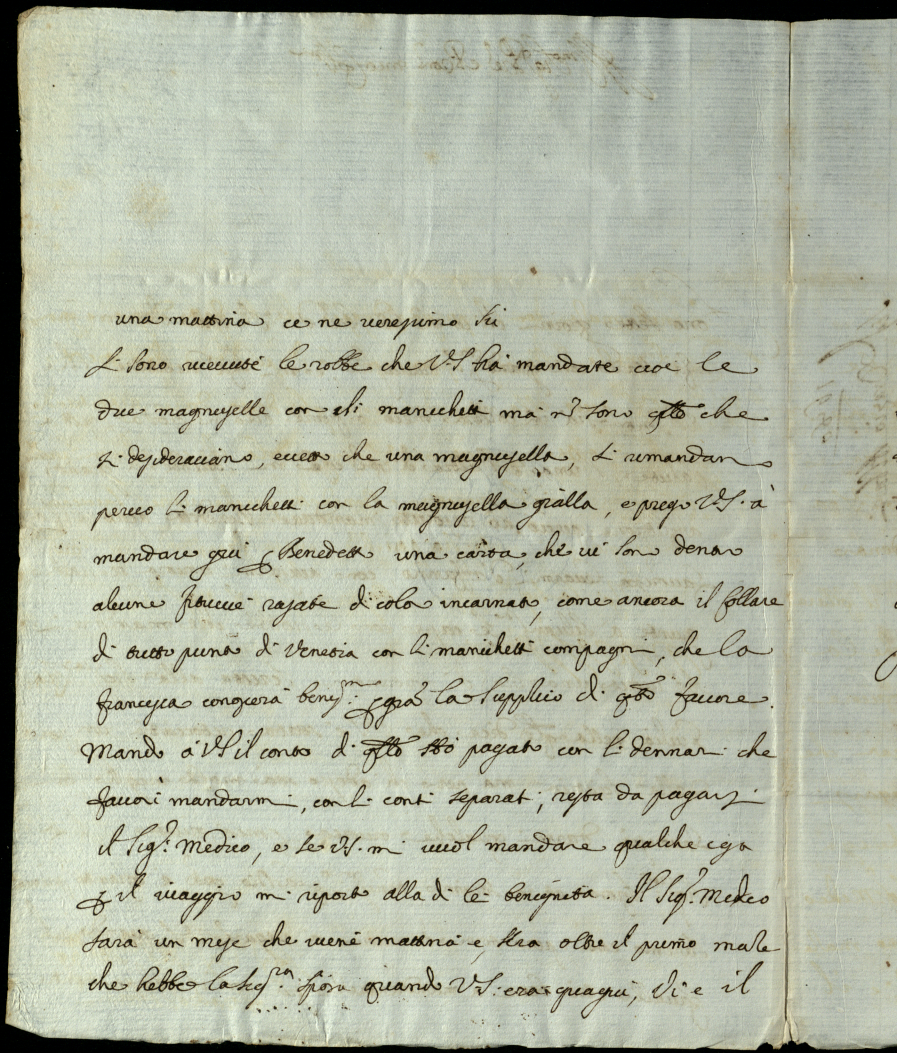 una mattina ce ne veressimo su
Si sono ricevute le robbe che V.S. hà mandate cioè le
due magnuselle con li manichetti ma nō sono q̃llo che
si desideravano, eccetto che una magnusella, si rimandano
perciò li manichetti con la magnusella gialla, e prego V.S. à
mandare quà ꝑ Benedetto una carta, che vi sono dentro
alcune fituccie rasate di color incarnato, come ancora il collare
di tutto punto di Venetia con li manichetti compagni, che la
francesca conoscerà beniss.mo ꝑ gra la supplico di q̃sto favore.
Mando à V.S. il conto di q̃llo hò pagato con li dennari che
favorì mandarmi, con li conti separati, resta da pagarsi
il Sig.r Medico, e se V.S. mi vuol mandare qualche cosa
ꝑ il viaggio mi riporto alla di lei benignità. Il Sig.r Medico
sarà un mese che viene mattina e sera oltre il primo male
che hebbe la Sig.ra sposa quando V.S. era quaquì, vi è il